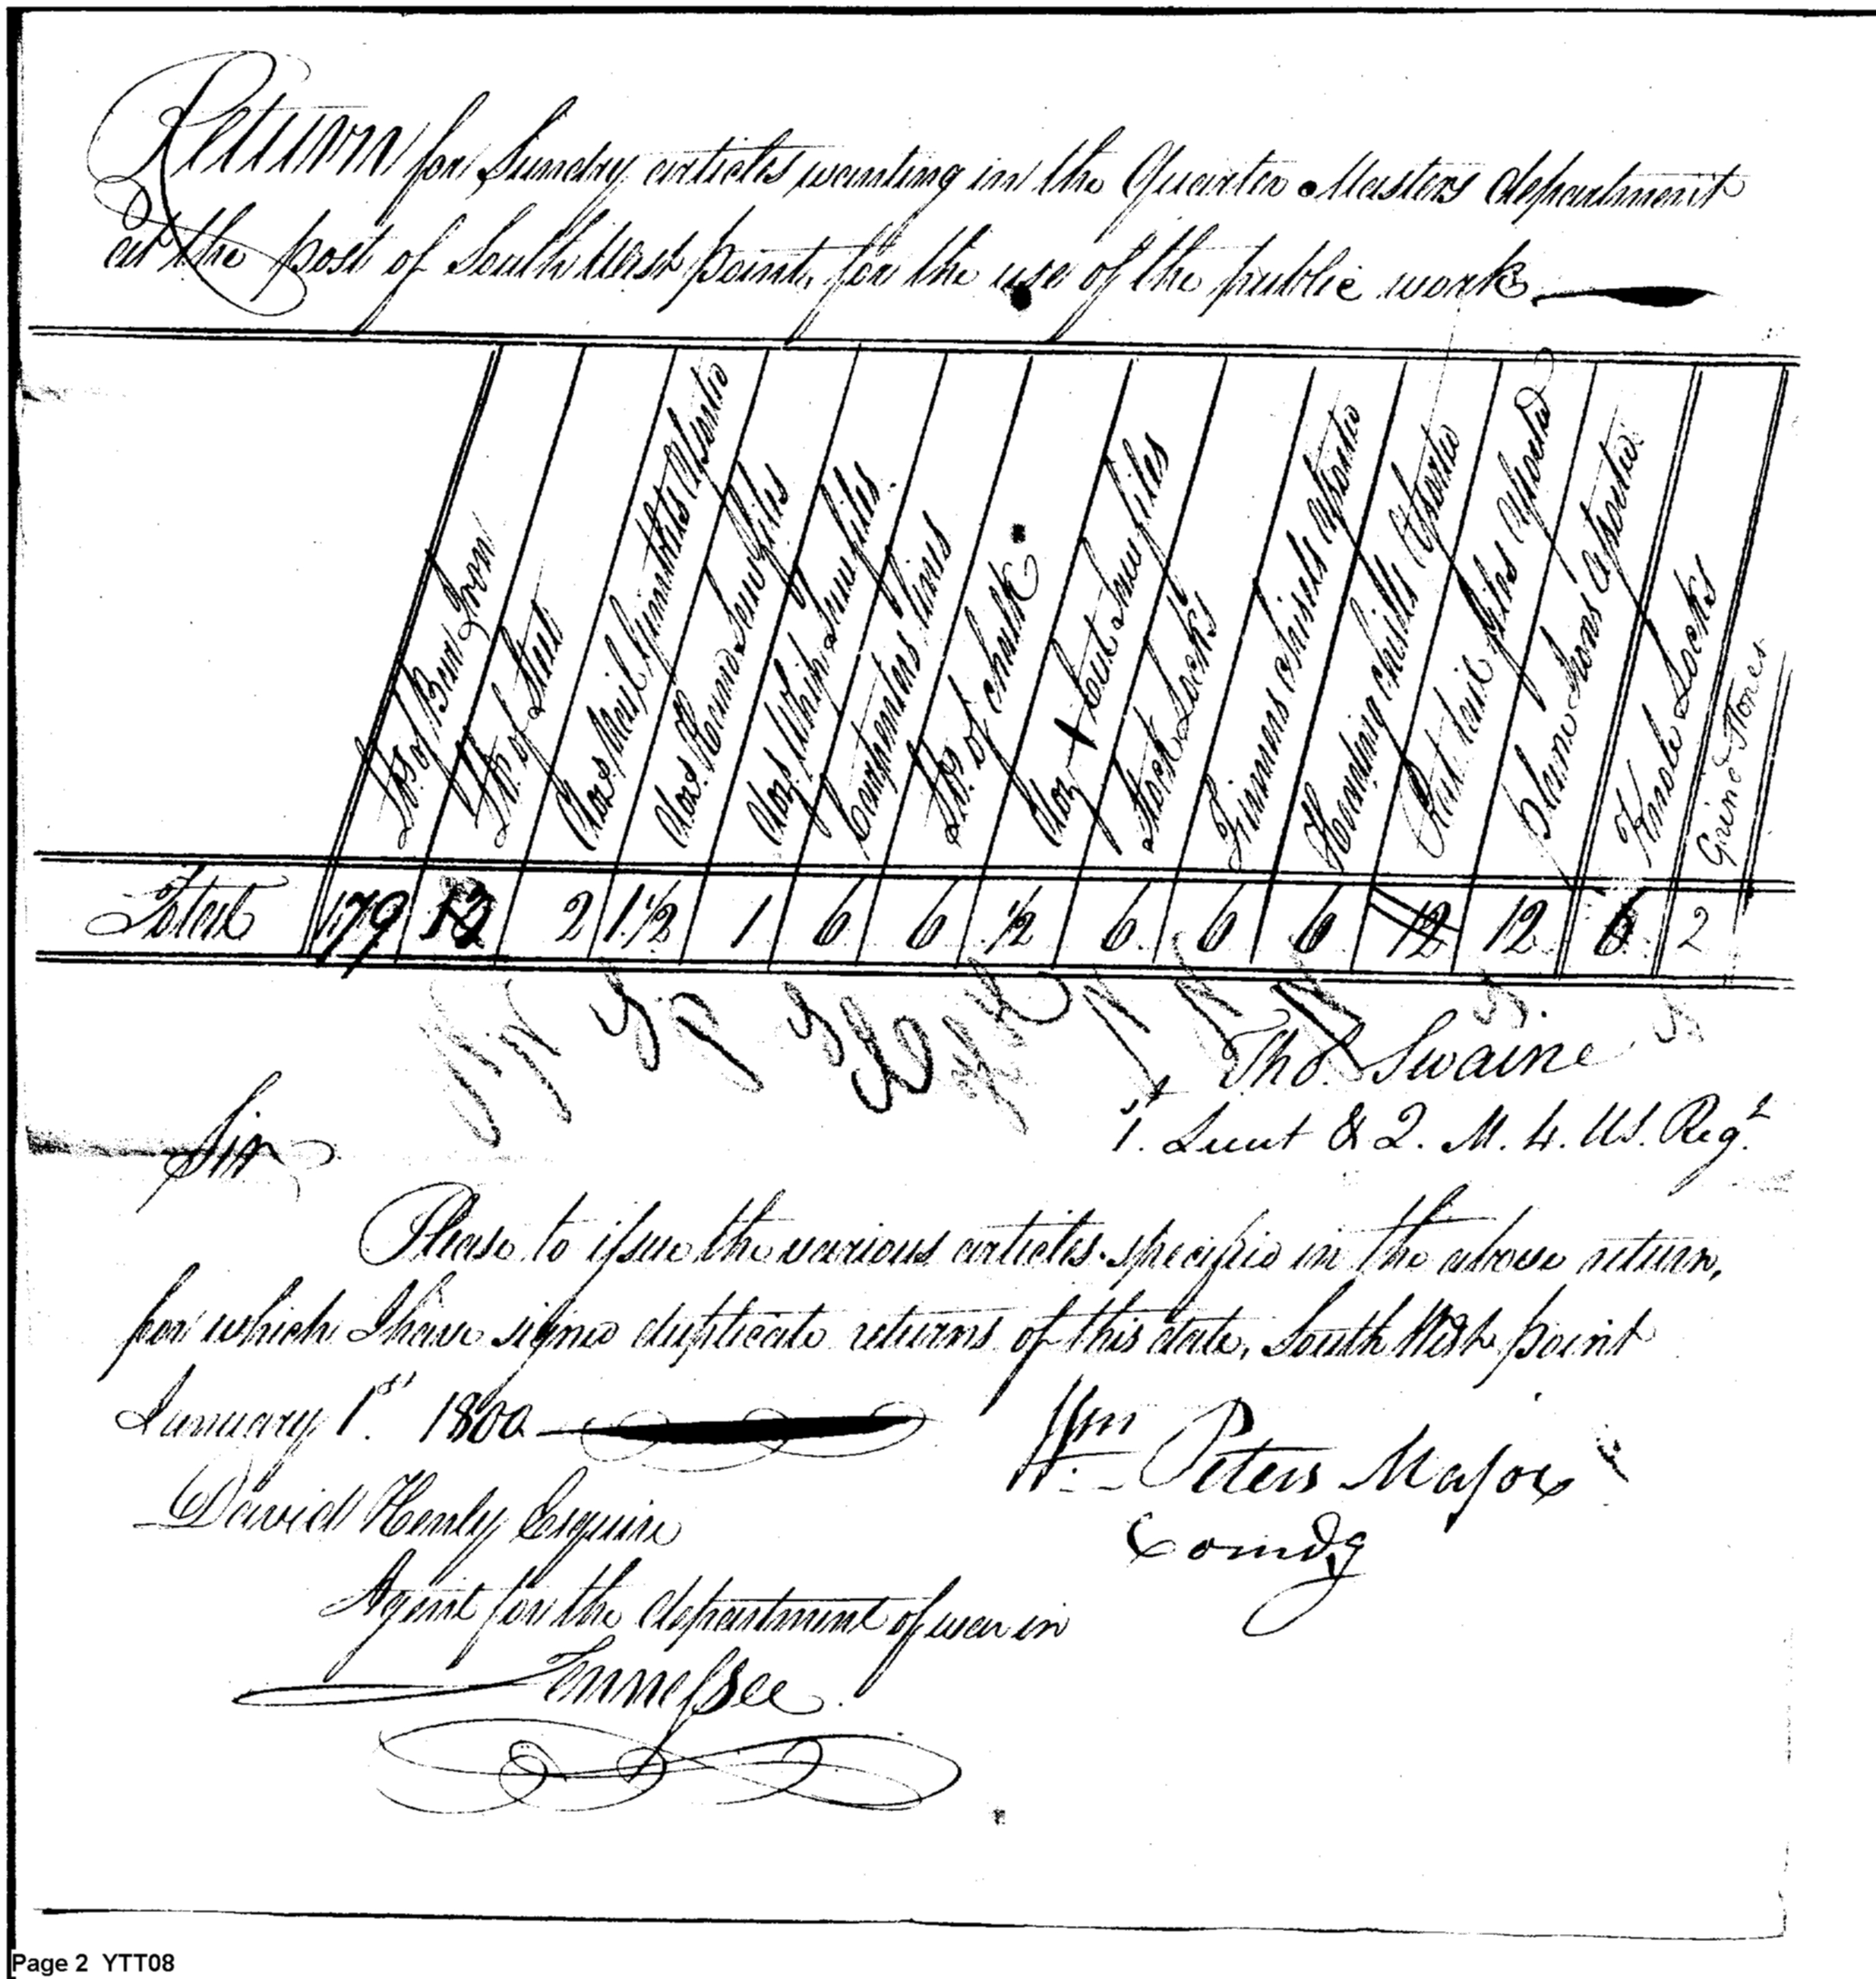 Return for Sundry articles wanting in the Quarter Masters department
at the post of South West point, for the use of the public work
lbs. of Barr Iron
lb. of Steel
Doz Nail Gimblets Assorted
Doz. Hand Saw files
Doz Whip Saw files
Carpenters lines
lbs. of chalk
Doz + Cut Saw files
Stock Locks
Firmers chissels assorted
Heading chissels Assorted
Rat tail files assorted
Plane Irons assorted
Knob Locks
Grind Stones
Total 179 12 2 1.½ 1 6 6 ½ 6 6 6 12 12 6 2
Tho.s Swaine
1.st Lieut & Q. M. 4. US. Reg.t
Sir
Please to issue the various articles specified in the above return,
for which I have signed duplicate returns of this date, South West point
January 1.st 1800
Wm Peters Major
Comdg
David Henly Esquire
Agent for the department of war in
Tennessee.
Page 2 YTT08